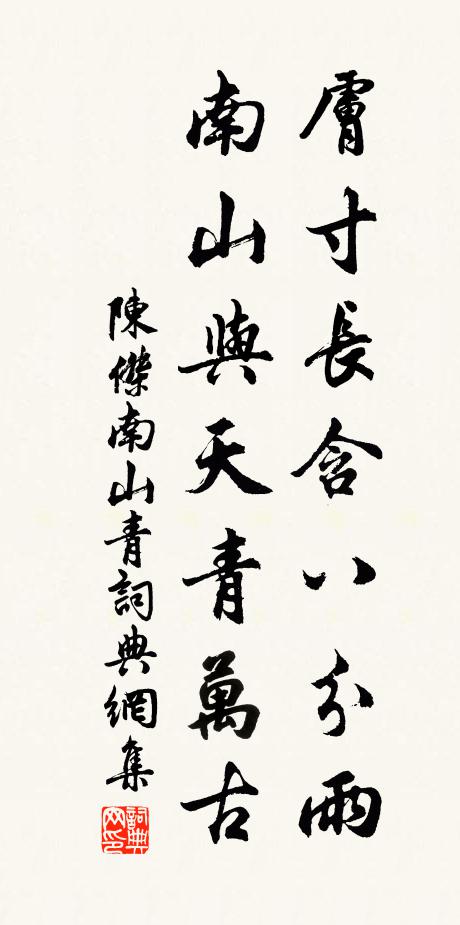 膚寸長含八分雨
南山與天青萬古
陳傑南山青詞典網集
詞典
网印